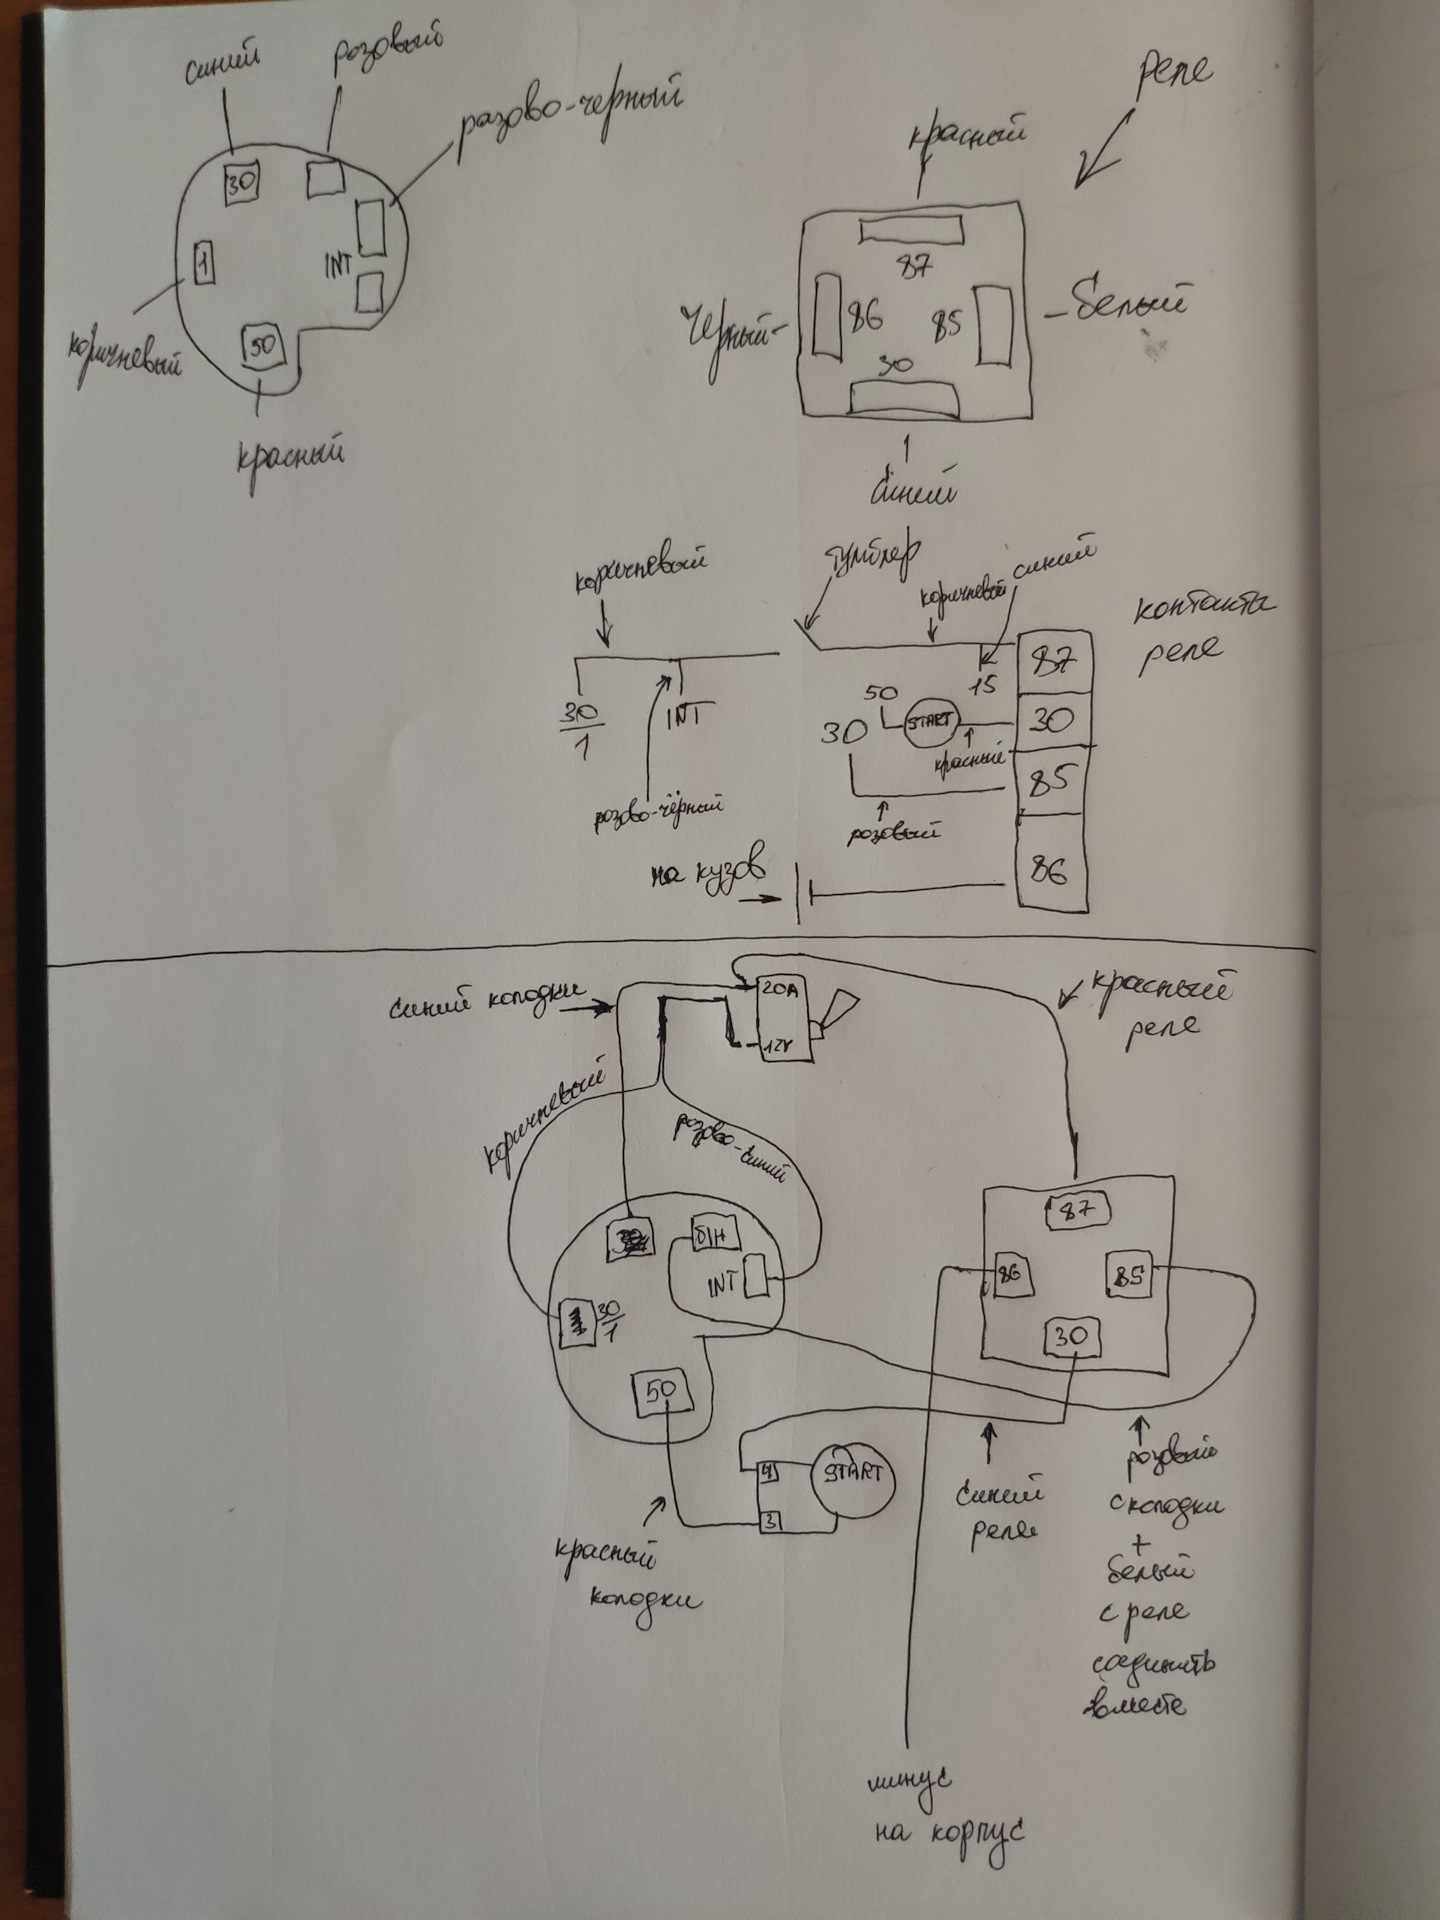 синий
розовый
разово-черный
30
1
INT
50
коричневый
красный
реле
красный
87
Черный-
86
85
-белый
30
синий
коричневый
30/1
INT
розово-чёрный
тумблер
коричневый
синий
15
50
START
30
красный
розовый
на кузов
87
30
85
86
контакта
реле
синий колодки
20A
12V
красный
реле
коричневый
розово-синий
INT
30/1
50
87
86
85
30
4
3
START
красный
колодки
синий
реле
розовый
с колодки
+
белый
с реле
соединить
вместе
минус
на корпус